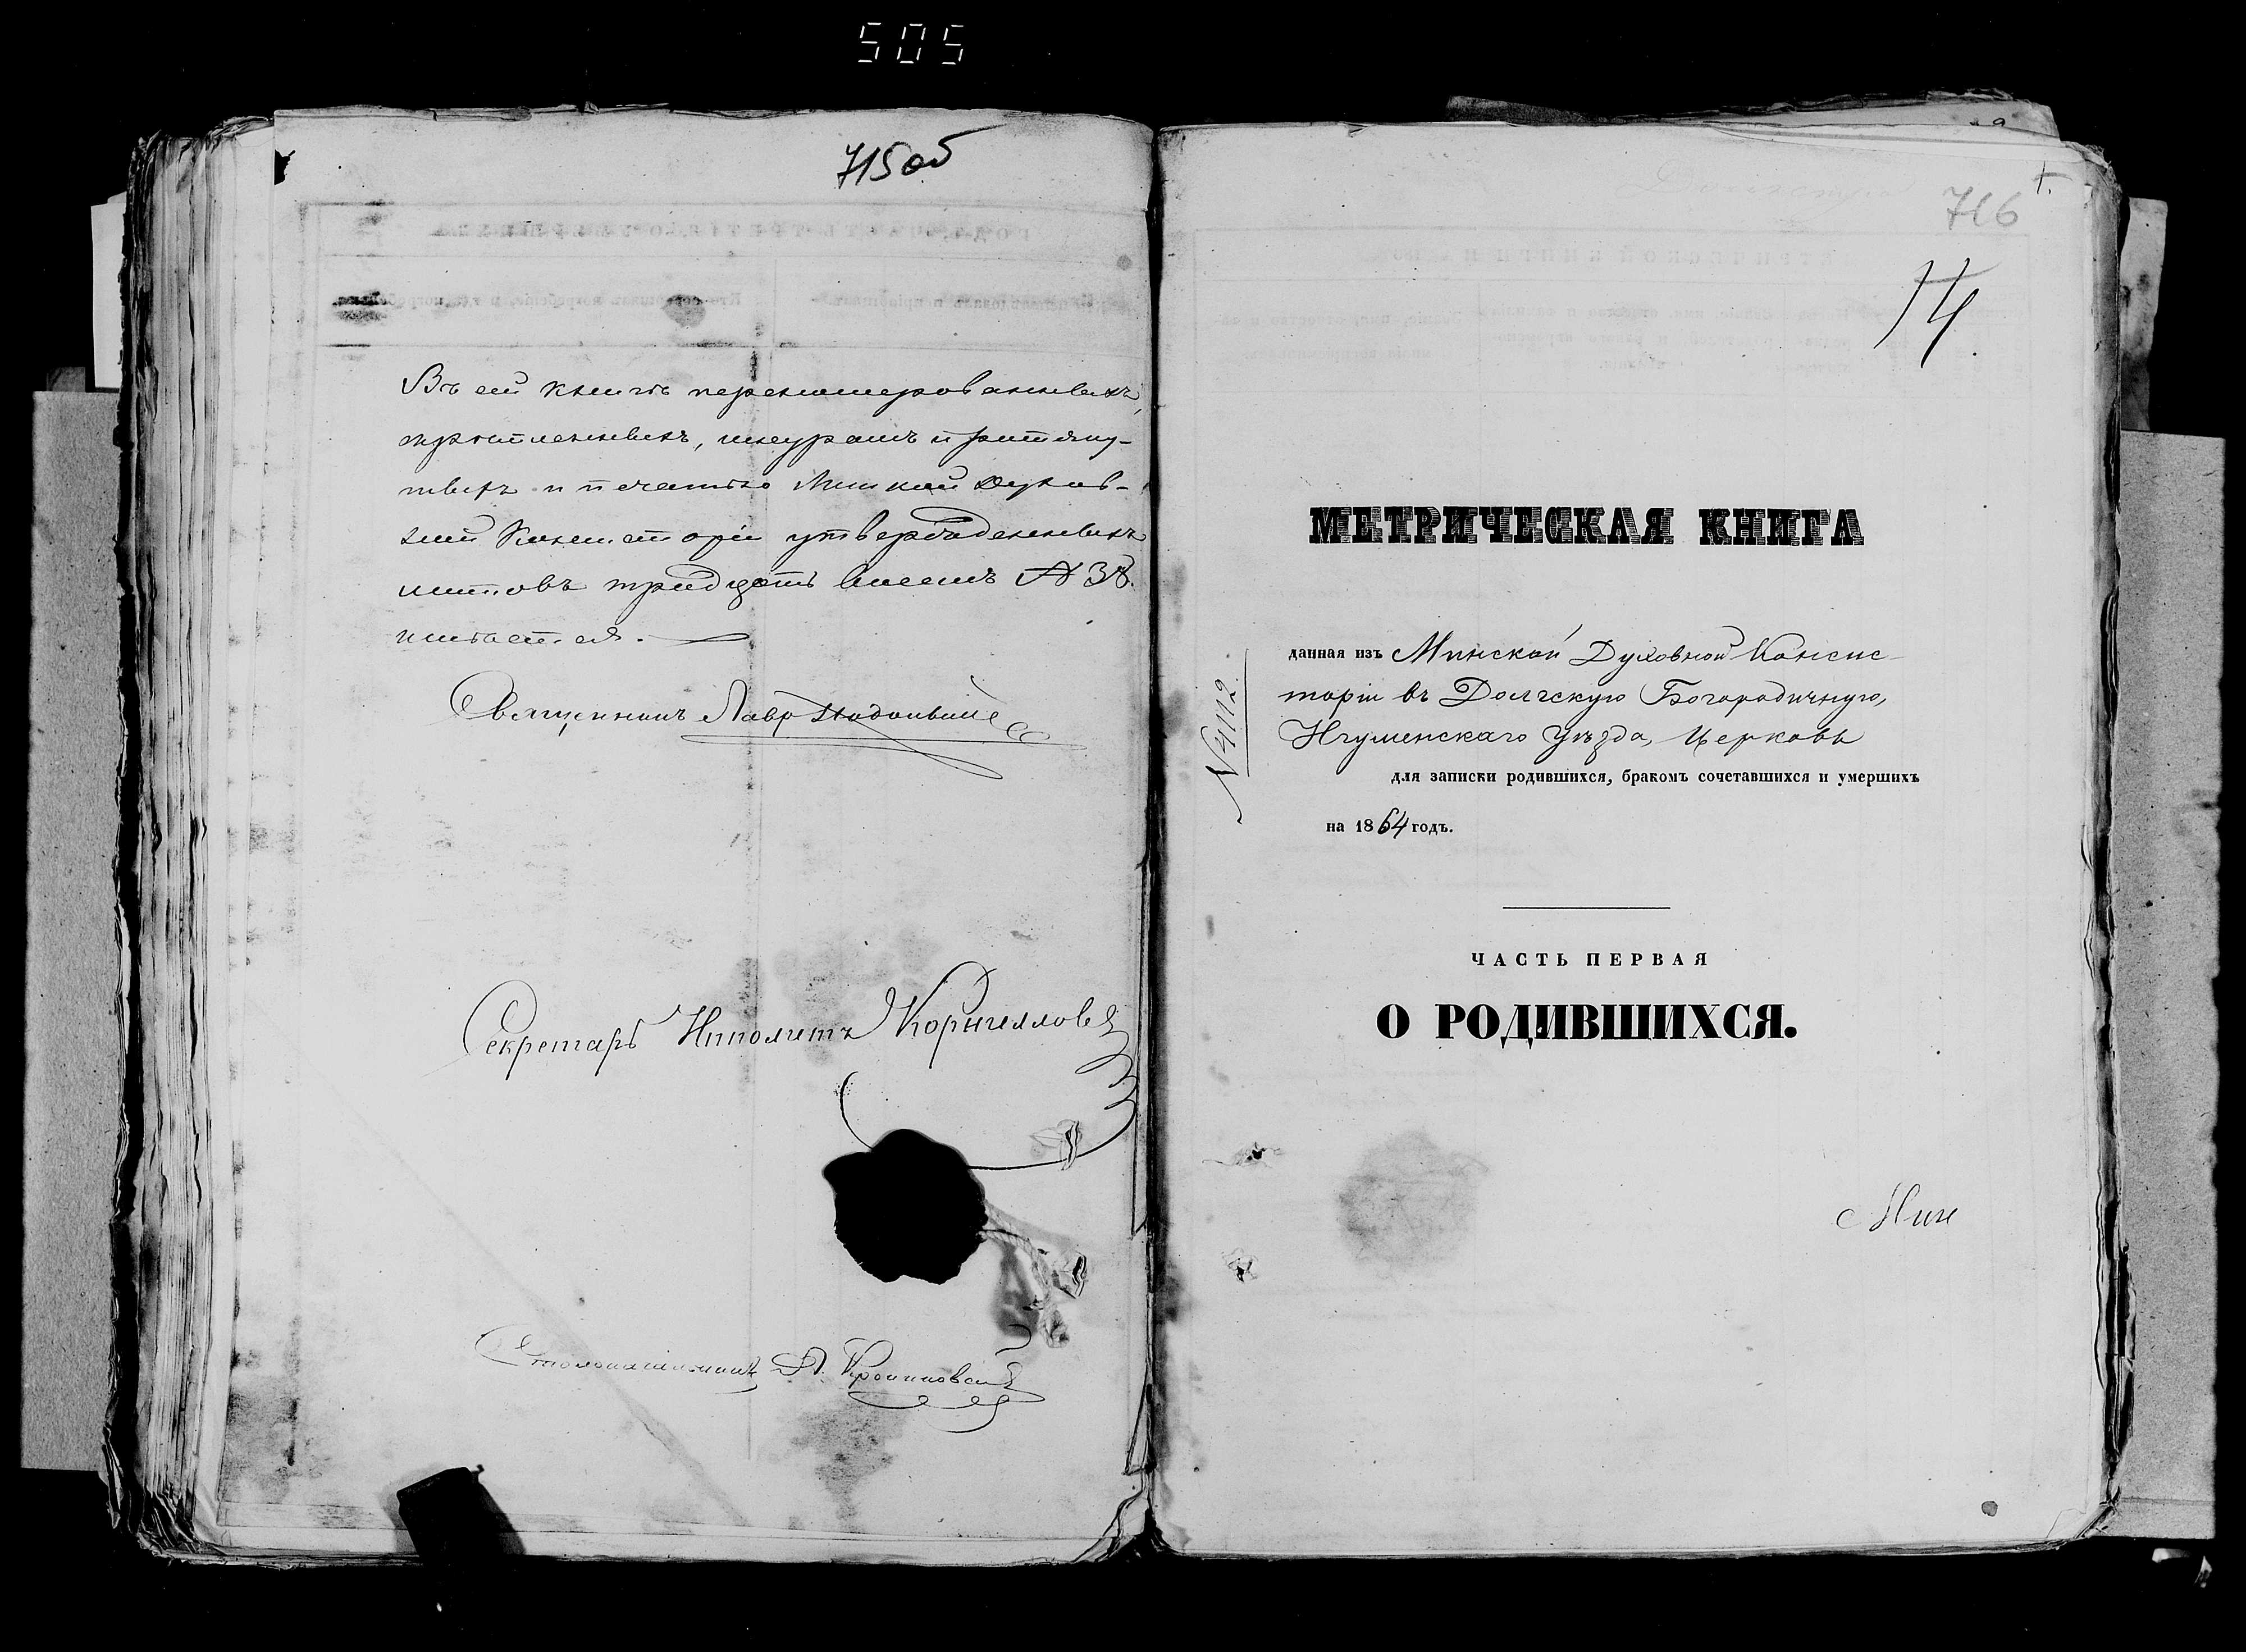 505
715 об
Въ сей книгѣ перенумерованныхъ,
скрѣпленныхъ, шнуромъ и
и печатью Минской Духов-
ной Консисторіи утвержденныхъ
листовъ тридцать восемь № 38.
имѣется.
Священникъ Лавр
Секретарь Ипполитъ Корниловъ
Столоначальникъ
716
14
МЕТРИЧЕСКАЯ КНИГА
данная изъ Минской Духовной Консис-
торіи въ Долгскую Богородичную,
Игуменскаго Уѣзда, Церковь
для записки родившихся, бракомъ сочетавшихся и умершихъ
на 1864 годъ.
№ 4112
ЧАСТЬ ПЕРВАЯ
О РОДИВШИХСЯ.
Мин